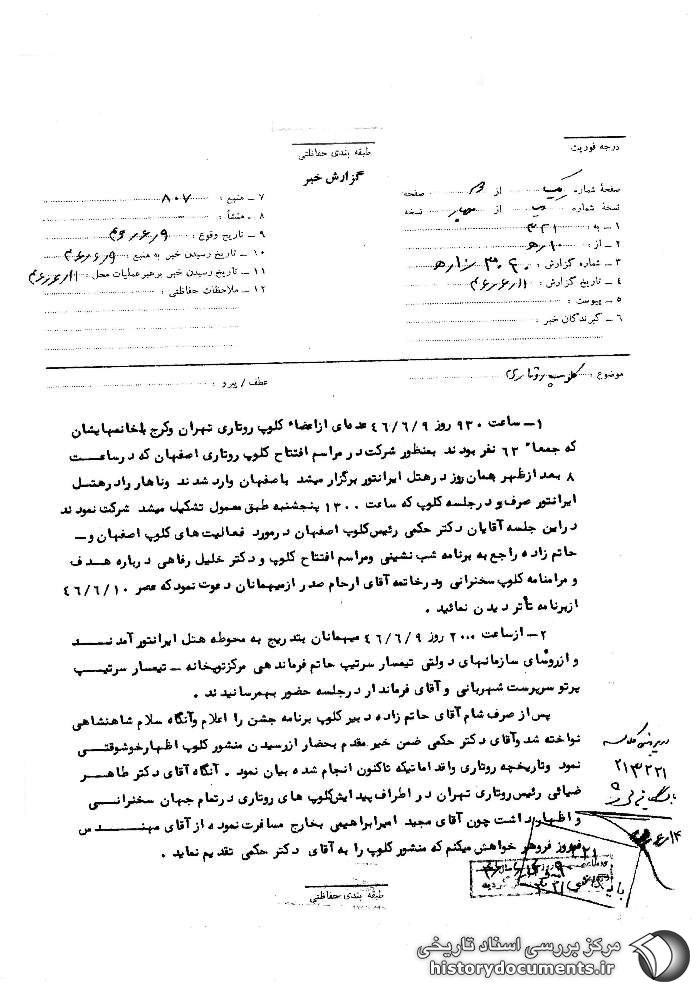 درجه فوریت
طبقه بندی حفاظتی
گزارش خبر
صفحهٔ شماره یک از صفحه
نسخهٔ شماره از چهار نسخه
۱ – به : ۳۲۱
۲ – از : ۱۰ ه‍
۳ – شماره گزارش :
۴ – تاریخ گزارش : ۴۶٫۶٫۱۱
۵ – پیوست :
۶ – گیرندگان خبر :
۷ – منبع : ۸۰۷
۸ – منشأ :
۹ – تاریخ وقوع : ۴۶٫۶٫۹
۱۰ – تاریخ رسیدن خبر به منبع : ۴۶٫۶٫۹
۱۱ – تاریخ رسیدن خبر برهبر عملیات محل : ۴۶٫۶٫۱۱
۱۲ – ملاحظات حفاظتی :
موضوع : کلوپ روتاری
عطف / پیرو :
۱– ساعت ۹۳۰ روز ۴۶/۶/۹ عده‌ای از اعضاء کلوپ روتاری تهران و کرج باخانمهایشان
که جمعا" ۶۳ نفر بودند بمنظور شرکت در مراسم افتتاح کلوپ روتاری اصفهان که در ساعت
۸ بعد از ظهر همان روز در هتل ایرانتور برگزار میشد باصفهان وارد شدند وناهار را در هتل
ایرانتور صرف و در جلسه کلوپ که ساعت ۱۳۰۰ پنجشنبه طبق معمول تشکیل میشد شرکت نمودند
در این جلسه آقایان دکتر حکمی رئیس کلوپ اصفهان در مورد فعالیت های کلوپ اصفهان و –
حاتم زاده راجع به برنامه شب نشینی ومراسم افتتاح کلوپ و دکتر خلیل رفاهی درباره هدف
و مرامنامه کلوپ سخنرانی ودرخاتمه آقای ارحام صدر ازمیهمانان دعوت نمود که عصر ۴۶/۶/۱۰
از برنامه تأتر دیدن نمائید .
۲– از ساعت ۲۰۰۰ روز ۴۶/۶/۹ میهمانان بتدریج به محوطه هتل ایرانتور آمدند
و ازروسای سازمانهای دولتی تیمسار سرتیپ حاتم فرماندهی مرکز توپخانه – تیمسار سرتیپ
پرتو سرپرست شهربانی و آقای فرماندار درجلسه حضور بهمرسانیدند .
پس از صرف شام آقای حاتم زاده دبیر کلوپ برنامه جشن را اعلام وآنگاه سلام شاهنشاهی
نواخته شد وآقای دکتر حکمی ضمن خیر مقدم بحضار ازرسیدن منشور کلوپ اظهارخوشوقتی
نمود وتاریخچه روتاری واقداماتیکه تاکنون انجام شده بیان نمود . آنگاه آقای دکتر طاهر
ضیائی رئیس روتاری تهران در اطراف پیدایش کلوپ های روتاری درتمام جهان سخنرانی
و اظهار داشت چون آقای مجید امیرابراهیمی بخارج مسافرت نموده از آقای مهندس
فیروز فروهر خواهش میکنم که منشور کلوپ را به آقای دکتر حکمی تقدیم نماید .
طبقه بندی حفاظتی
مرکز بررسی اسناد تاریخی
historydocuments.ir